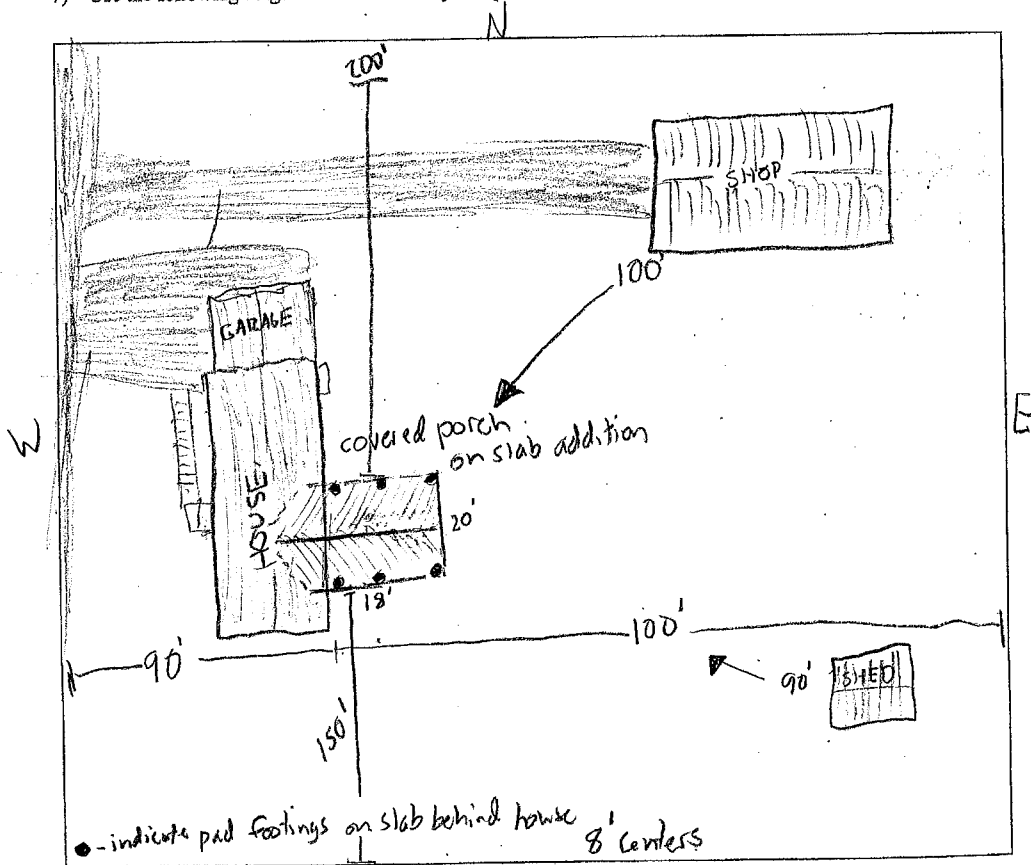 N
200'
SHOP
100'
GARAGE
covered porch
on slab addition
W
E
HOUSE
20'
18'
100'
90'
90'
SHED
150'
- indicate pad footings on slab behind house
8' centers